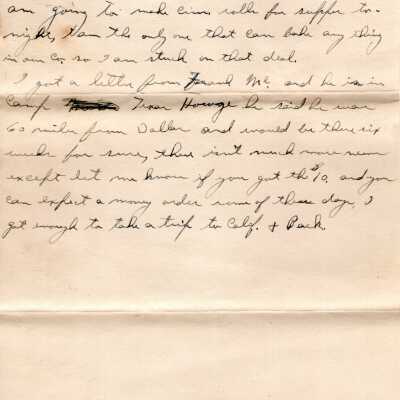 am going to make cinn rolls for supper to-
night, I am the only one that can bake any thing
in our Co. so I am stuck on that deal.
I got a letter from Frank Mc. and he is in
Camp Texas Howze he said he was
60 miles from Dallas and would be there six
weeks for sure, there isn't much more news
except let me know if you got the $10, and you
can expect a money order some of these days, I
get enough to take a trip to Calif. & Back.